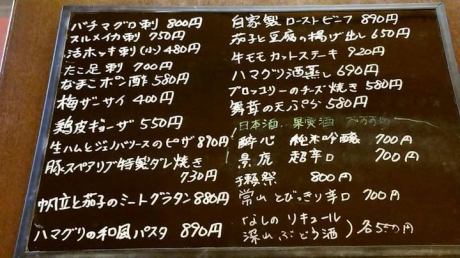 バチマグロ刺 800円
スルメイカ刺 750円
活ホッキ刺(小)480円
たこ足刺 700円
なまこポン酢 580円
梅ザーサイ 400円
鶏皮ギョーザ 550円
生ハムとジェノバソースのピザ 890円
豚スペアリブ特製ダレ焼き
730円
帆立と茄子のミートグラタン 880円
ハマグリの和風パスタ 890円
自家製ローストビーフ 890円
茄子と豆腐の揚げ出し 650円
牛モモカットステーキ 920円
ハマグリ酒蒸し 690円
ブロッコリーのチーズ焼き 580円
舞茸の天ぷら 580円
日本酒、果実酒 おすすめ
酔心 純米吟醸 700円
景虎 超辛口 700円
手頼祭 800円
常山 とびっきり辛口 700円
なしのリキュール
深山ぶどう酒 ) 各550円